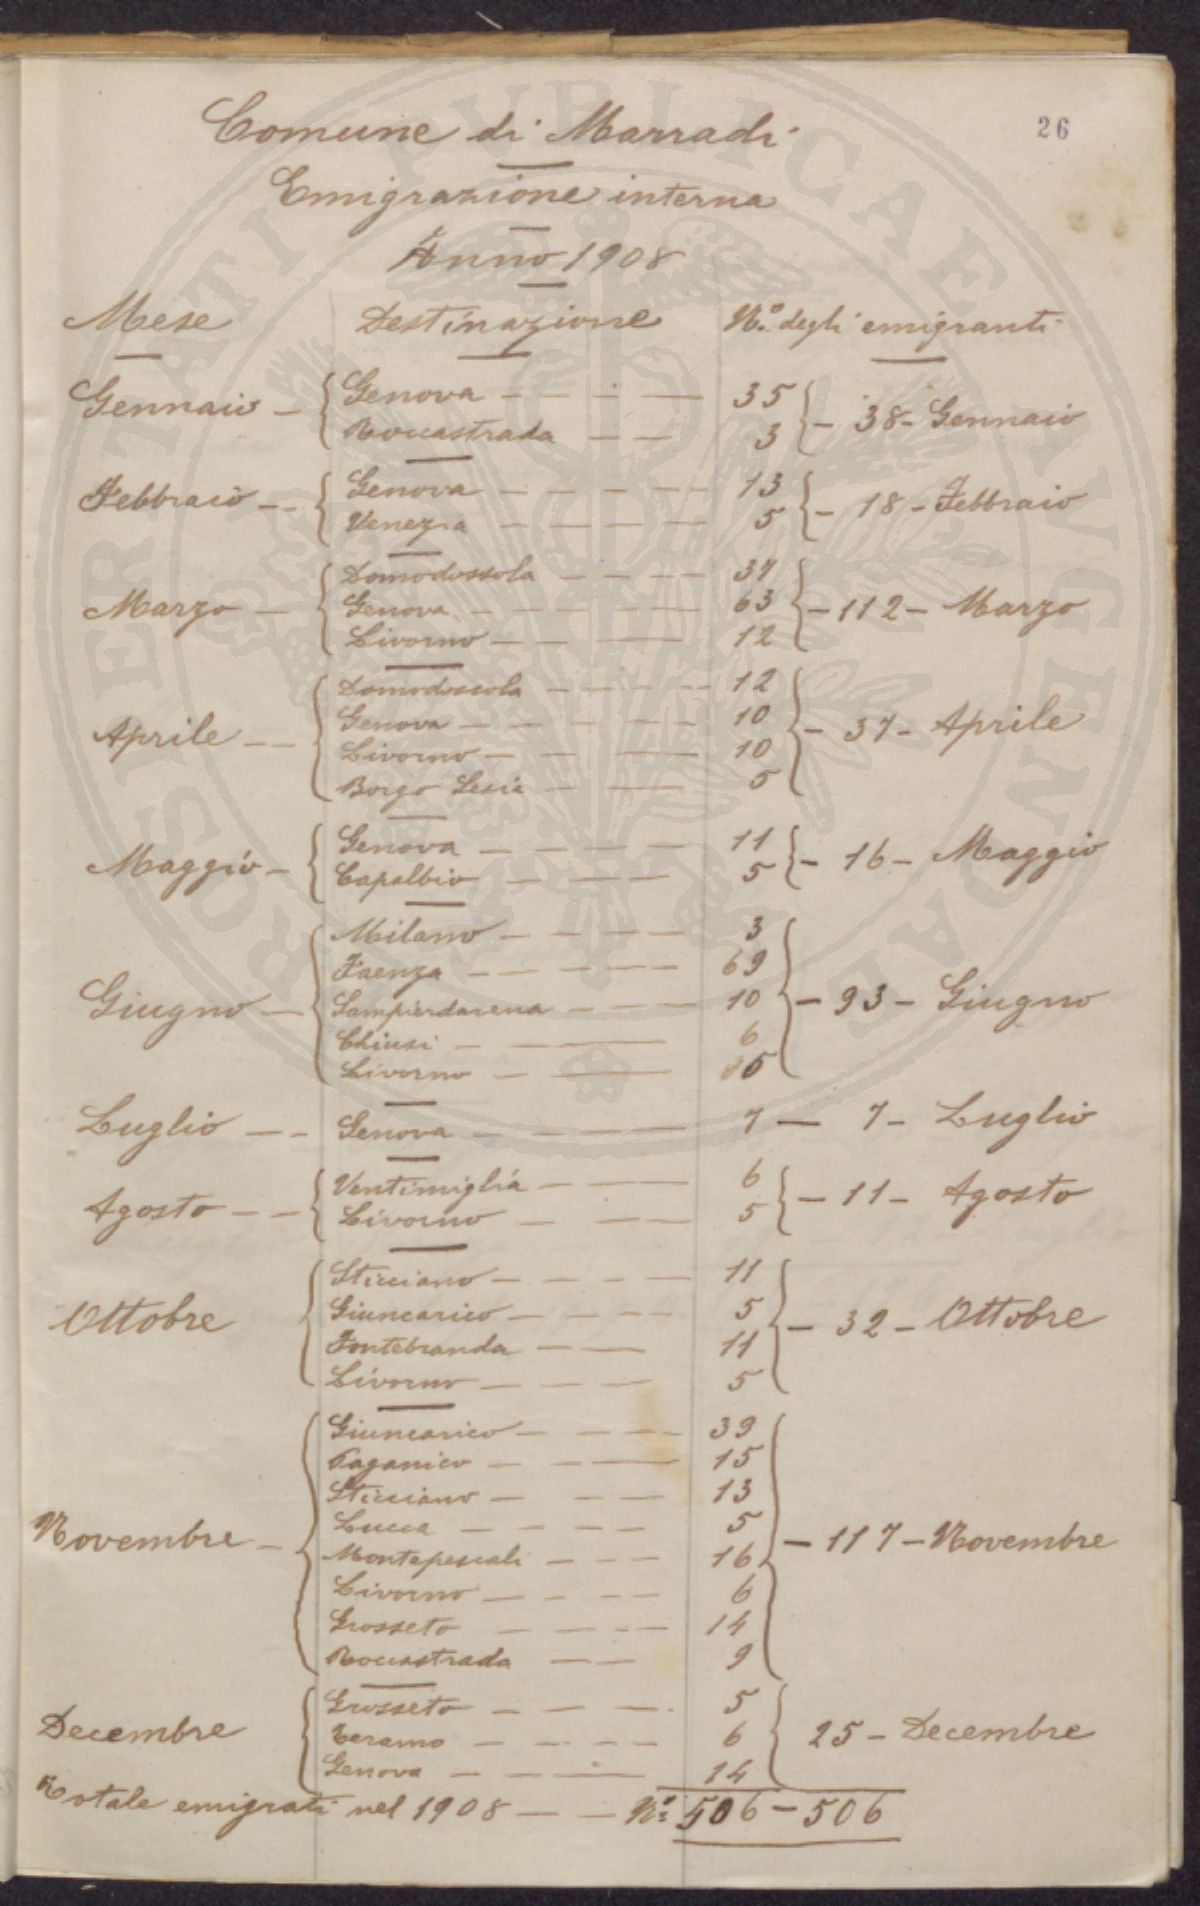 26
Comune di Marradi
Emigrazione interna
Anno 1908
Mese Destinazione N.º degli emigranti
Gennaio – { Genova – – – — 35 } – 38 – Gennaio
Roccastrada – — 3
Febbraio – – { Genova – – – – – 13 } – 18 – Febbraio
Venezia – – – – – 5
Marzo – { Domodossola – – – – 37 } – 112 – Marzo
Genova – – – – – 63
Livorno – – — 12
Aprile – – { Domodossola – – – – – 12 } – 37 – Aprile
Genova – – – — 10
Livorno – – — 10
Borgo Sesia – — 5
Maggio – { Genova – – – – 11 } – 16 – Maggio
Capalbio – – — 5
Giugno – { Milano – – – – 3 } – 93 – Giugno
Faenza – – – – – 69
Sampierdarena – – – 10
Chiusi – — 6
Livorno – — 5
Luglio – – Genova – – — 7 — 7 – Luglio
Agosto – – { Ventimiglia – – – – 6 } – 11 – Agosto
Livorno – – – 5
Ottobre { Sticciano – – – – – 11 } – 32 – Ottobre
Giuncarico – – – – 5
Fontebranda – — 11
Livorno – – – – 5
Novembre – { Giuncarico – – – – 39 } – 117 – Novembre
Paganico – – — 15
Sticciano – – – 13
Lucca – – – – 5
Montepescali – – – 16
Livorno – – – – 6
Grosseto – – – – 14
Roccastrada – – 9
Decembre { Grosseto – – – – 5 } 25 – Decembre
Teramo – – – – 6
Genova – – — 14
Totale emigrati nel 1908 – – Nº 506 – 506